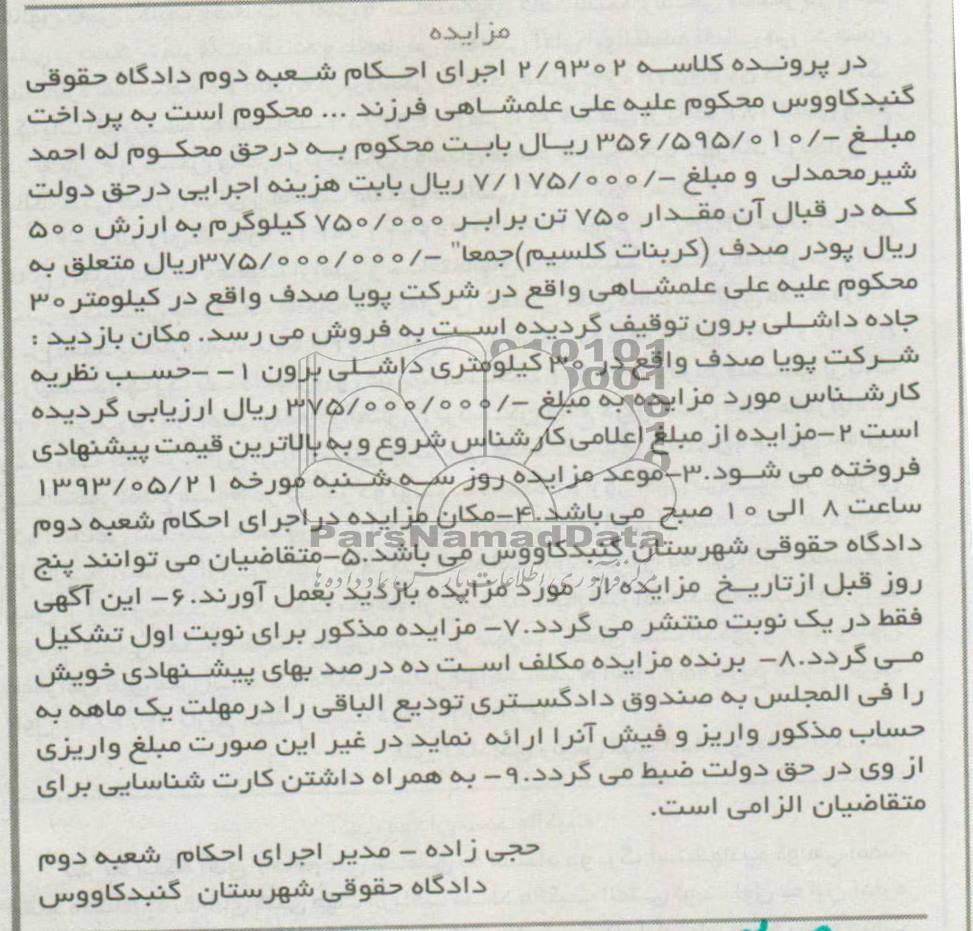 مزایده
در پرونده کلاسه ۲/۹۳۰۲ اجرای احکام شعبه دوم دادگاه حقوقی
گنبدکاووس محکوم علیه علی علمشاهی فرزند ... محکوم است به پرداخت
مبلغ -/۳۵۶/۵۹۵/۰۱۰ ریال بابت محکوم به درحق محکوم له احمد
شیرمحمدلی و مبلغ -/۷/۱۷۵/۰۰۰ ریال بابت هزینه اجرایی درحق دولت
که در قبال آن مقدار ۷۵۰ تن برابر ۷۵۰/۰۰۰ کیلوگرم به ارزش ۵۰۰
ریال پودر صدف (کربنات کلسیم)جمعا" -/۳۷۵/۰۰۰/۰۰۰ریال متعلق به
محکوم علیه علی علمشاهی واقع در شرکت پویا صدف واقع در کیلومتر ۳۰
جاده داشلی برون توقیف گردیده است به فروش می رسد. مکان بازدید :
شرکت پویا صدف واقع در ۳۰ کیلومتری داشلی برون ۱- -حسب نظریه
کارشناس مورد مزایده به مبلغ -/۳۷۵/۰۰۰/۰۰۰ ریال ارزیابی گردیده
است ۲-مزایده از مبلغ اعلامی کارشناس شروع و به بالاترین قیمت پیشنهادی
فروخته می شود.۳-موعد مزایده روز سه شنبه مورخه ۱۳۹۳/۰۵/۲۱
ساعت ۸ الی ۱۰ صبح می باشد.۴-مکان مزایده در اجرای احکام شعبه دوم
دادگاه حقوقی شهرستان گنبدکاووس می باشد.۵-متقاضیان می توانند پنج
روز قبل ازتاریخ مزایده از مورد مزایده بازدید بعمل آورند.۶- این آگهی
فقط در یک نوبت منتشر می گردد.۷- مزایده مذکور برای نوبت اول تشکیل
می گردد.۸- برنده مزایده مکلف است ده درصد بهای پیشنهادی خویش
را فی المجلس به صندوق دادگستری تودیع الباقی را درمهلت یک ماهه به
حساب مذکور واریز و فیش آنرا ارائه نماید در غیر این صورت مبلغ واریزی
از وی در حق دولت ضبط می گردد.۹- به همراه داشتن کارت شناسایی برای
متقاضیان الزامی است.
حجی زاده - مدیر اجرای احکام شعبه دوم
دادگاه حقوقی شهرستان گنبدکاووس
ParsNamadData